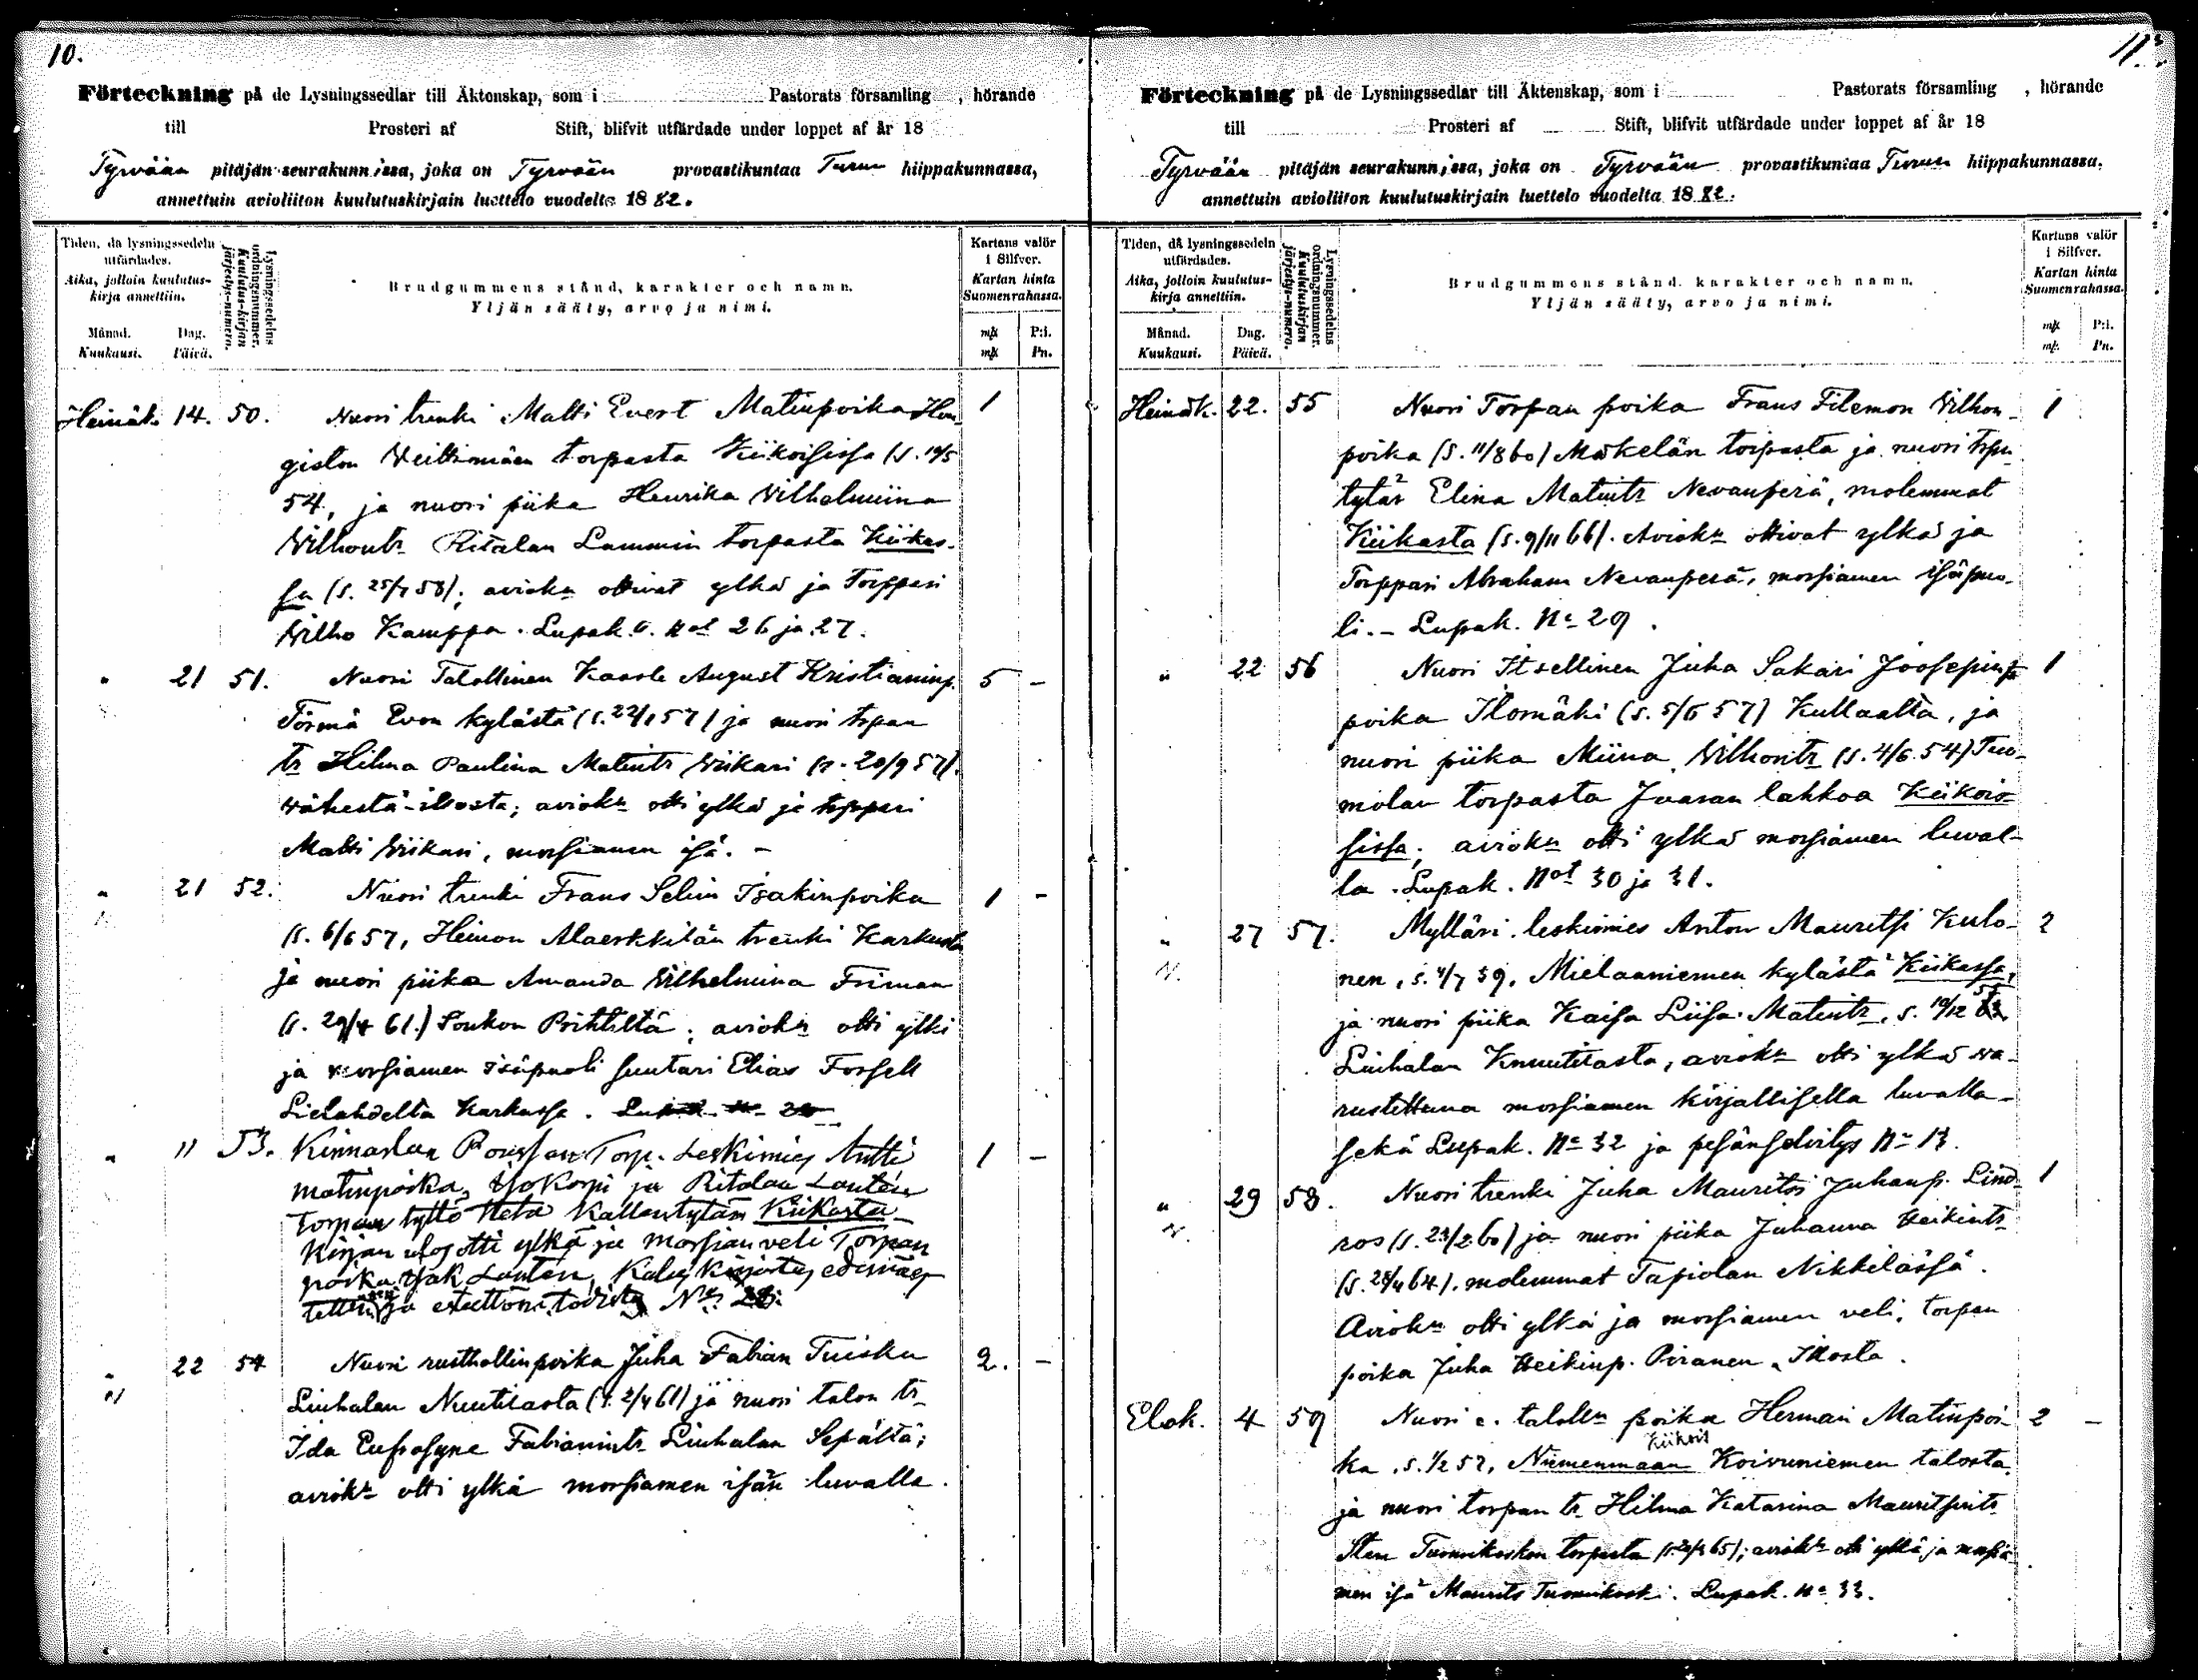 10.
Förteckning på de Lysningssedlar till Äktenskap, som i Pastorats församling , hörande
till Prosteri af Stift, blifvit utfärdade under loppet af år 18
Tyrvään pitäjän seurakunnissa, joka on Tyrvään provastikuntaa Turun hiippakunnassa,
annettuin avioliiton kuulutuskirjain luettelo vuodelta 1882.
Tiden, då lysningssedeln utfärdades.
Aika, jolloin kuulutuskirja annettiin.
Månad. Dag.
Kuukausi. Päivä.
Lysningssedelns ordningsnummer.
Kuulutus-kirjan järjestys-numero.
Brudgummens stånd, karakter och namn.
Yljän sääty, arvo ja nimi.
Kartans valör i Silfver.
Kartan hinta Suomenrahassa.
mk P:i.
mk Pn.
Heinäk. 14. 50. Nuori trenki Matti Evert Matinpoika Hon- 1
giston Weittimäen torpasta Kiikoisissa (s. 19/5
54, ja nuori piika Henrika Vilhelmiina
Vilhontr Ritalan Lammin torpasta Kiikas-
sa (s. 25/7 58); aviokn ottivat ylkä ja Torppari
Wilho Kamppa. Lupak. t. Not 26 ja 27.
" 21 51. Nuori Talollinen Kaarle August Kristianinp. 5 -
Törmä Evon kylästä (s. 22/1 57) ja nuori torpan
tr Hilma Paulina Matintr Wiikari (s. 20/9 57)
Wähestä-illosta; aviokn otti ylkä ja torppari
Matti Wiikari, morsiamen isä. -
" 21 52. Nuori trenki Frans Selim Isakinpoika 1 -
(s. 6/6 57, Heinon Alaerkkilän trenki Karkusta
ja nuori piika Amanda Vilhelmina Friman
(s. 29/4 61.) Soukon Pöihtiltä; aviokn otti ylki
ja morsiamen isäpuoli suutari Elias Forsell
Lielahdelta Karkussa.
" 11 53. Kinnarlan Torp. Leskimies Antti 1 -
matinpoika, Isokorpi ja Ritalan Lauten
Torpan tyttö Heta Kallentytär Kiikasta
Kirjan ulos otti ylkä ja morsian veli Torpan
poika Isak Lauten,
ja esteettömi. todistus
" 22 54 Nuori rusthollinpoika Juha Fabian Tuisku 2. -
Liuhalan Nuutilasta (s. 2/4 61) ja nuori talon tr
Ida Eufrosyne Fabianintr Liuhalan Sepältä;
aviokn otti ylkä morsiamen isän luvalla.
11.
Förteckning på de Lysningssedlar till Äktenskap, som i Pastorats församling , hörande
till Prosteri af Stift, blifvit utfärdade under loppet af år 18
Tyrvään pitäjän seurakunnissa, joka on Tyrvään provastikuntaa Turun hiippakunnassa.
annettuin avioliiton kuulutuskirjain luettelo vuodelta 1882.
Tiden, då lysningssedeln utfärdades.
Aika, jolloin kuulutuskirja annettiin.
Månad. Dag.
Kuukausi. Päivä.
Lysningssedelns ordningsnummer.
Kuulutuskirjan järjestys-numero.
Brudgummens stånd, karakter och namn.
Yljän sääty, arvo ja nimi.
Kartans valör i Silfver.
Kartan hinta Suomenrahassa.
mk P:i.
mk. Pn.
Heinäk. 22. 55 Nuori Torpan poika Frans Filemon Vilhon- 1
poika (s. 11/8 60) Mäkelän torpasta ja nuori torpn
tytär Elina Matintr Nevanperä, molemmat
Kiikasta (s. 9/11 66). Aviokn ottivat ylkä ja
Torppari Abraham Nevanperä, morsiamen isäpuo-
li. - Lupak. No 29.
" 22 56 Nuori Itsellinen Juha Sakari Joosepin 1
poika Ilomäki (s. 5/6 57) Kullaalta, ja
nuori piika Miina Vilhontr (s. 4/6 54) Tuo-
molan torpasta Jaaran lahkoa Kiikoi-
sissa; aviokn otti ylkä morsiamen luval-
la. Lupak. Not 30 ja 31.
" 27 57. Mylläri leskimies Anton Mauritsi Kulo- 2
nen, s. 4/7 39, Mielaaniemen kylästä Kiikassa,
ja nuori piika Kaisa Liisa Matintr, s. 19/12
Liuhalan Knuutilasta, aviokn otti ylkä va-
rustettuna morsiamen kirjallisella luvalla
sekä Lupak. No 32 ja pesänselvitys No 13.
" 29 58. Nuori trenki Juha Mauritsi Juhanp. Lind- 1
ros (s. 23/2 60) ja nuori piika Juhanna Heikintr
(s. 28/4 64). molemmat Tapiolan Nikkilässä.
Aviokn otti ylkä ja morsiamen veli, torpan
poika Juha Heikinp. Piranen, Illosta.
Elok. 4 59 Nuori e. talolln poika Herman Matinpoi- 2 -
Kiikois
ka, s. 1/2 57, Niemenmaan Koivuniemen talosta,
ja nuori torpan tr Hilma Katarina Mauritsintr
Sten Tuomikosken torpasta; aviokn otti ylkä ja morsia-
men isä Maurits Tuomikoski. Lupak. No 33.